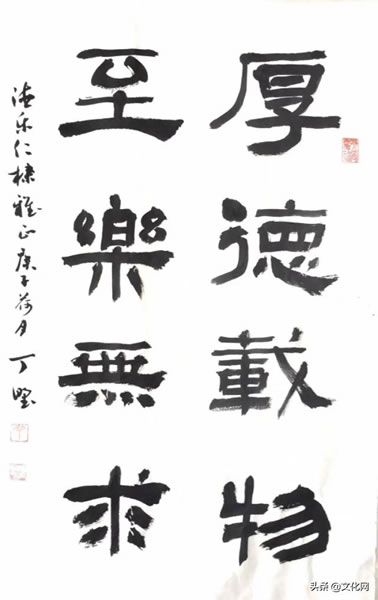 厚德載物
至樂無求
德乐仁棣雅正庚子荷月丁堅
头条@文化网